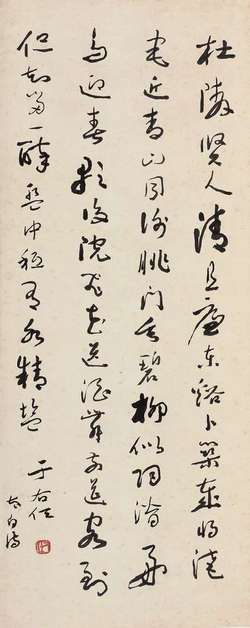 杜陵賢人清且廉東谿卜築歲將淹
宅近青山同謝朓門垂碧柳似陶潛好
鳥迎春歌後院飛花送酒舞前簷客到
但知留一醉盤中祇有水精鹽 于右任
太白詩